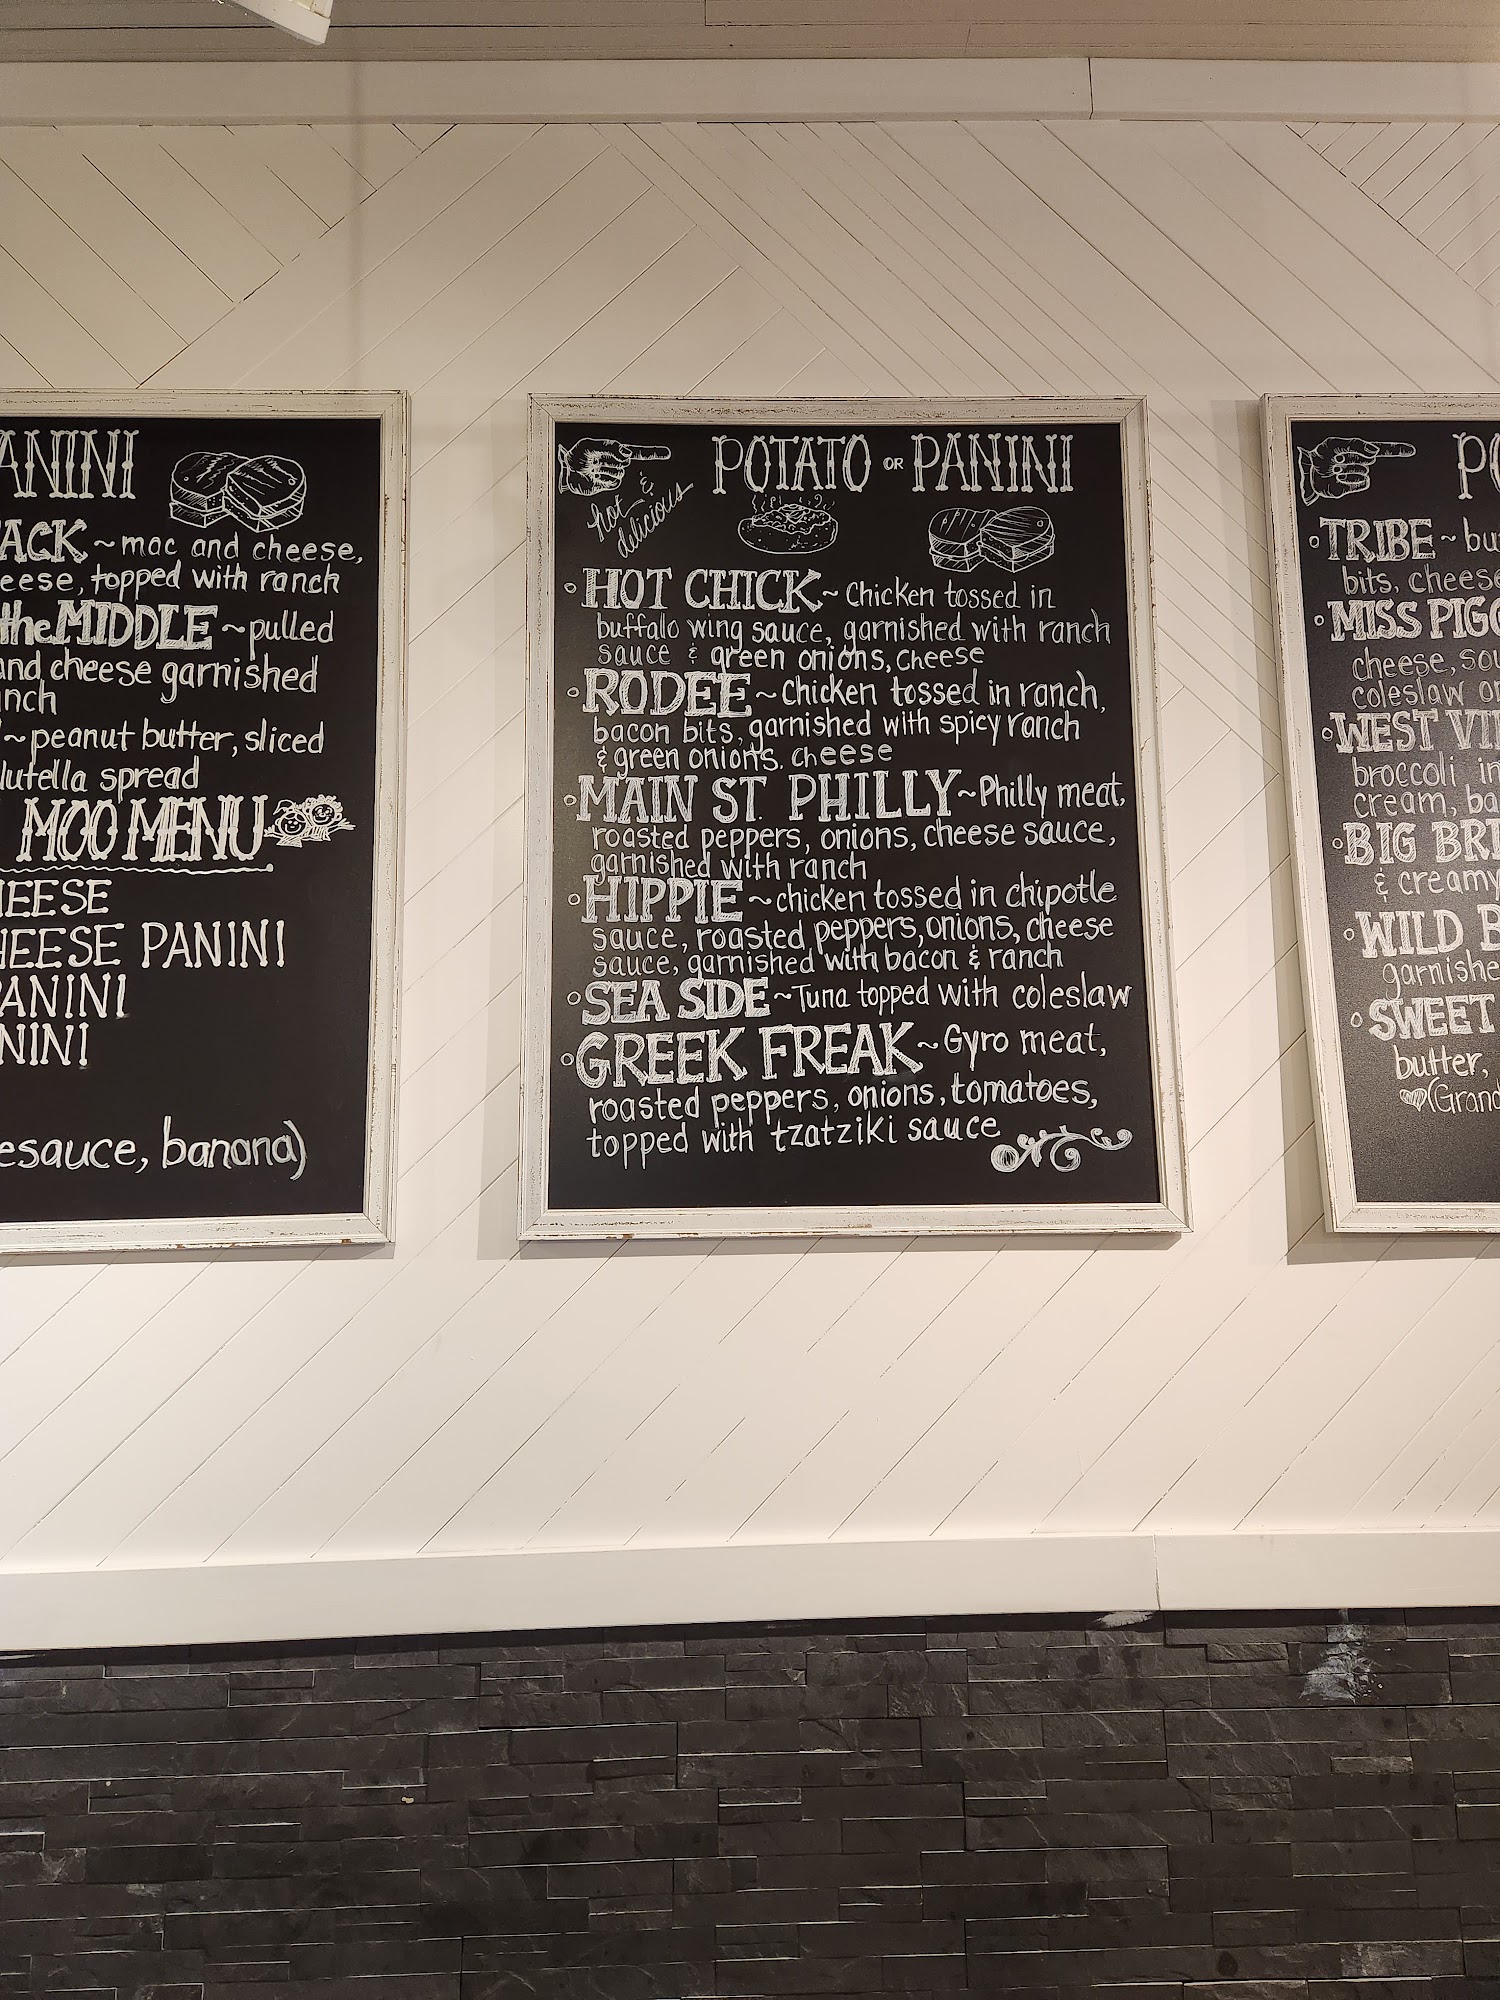 ANINI
ACK ~ mac and cheese,
eese, topped with ranch
the MIDDLE ~ pulled
and cheese garnished
nch
~ peanut butter, sliced
lutella spread
MOO MENU
HEESE
HEESE PANINI
PANINI
NINI
esauce, banana)
POTATO OR PANINI
hot &
delicious
HOT CHICK ~ Chicken tossed in
buffalo wing sauce, garnished with ranch
sauce & green onions, cheese
RODEE ~ Chicken tossed in ranch,
bacon bits, garnished with spicy ranch
& green onions. cheese
MAIN ST. PHILLY ~ Philly meat,
roasted peppers, onions, cheese sauce,
garnished with ranch
HIPPIE ~ chicken tossed in chipotle
sauce, roasted peppers, onions, cheese
sauce, garnished with bacon & ranch
SEA SIDE ~ Tuna topped with coleslaw
GREEK FREAK ~ Gyro meat,
roasted peppers, onions, tomatoes,
topped with tzatziki sauce
PO
TRIBE ~ bu
bits, cheese
MISS PIGG
cheese, sou
coleslaw or
WEST VI
broccoli in
cream, ba
BIG BR
& creamy
WILD B
garnishe
SWEET
butter,
(Grand